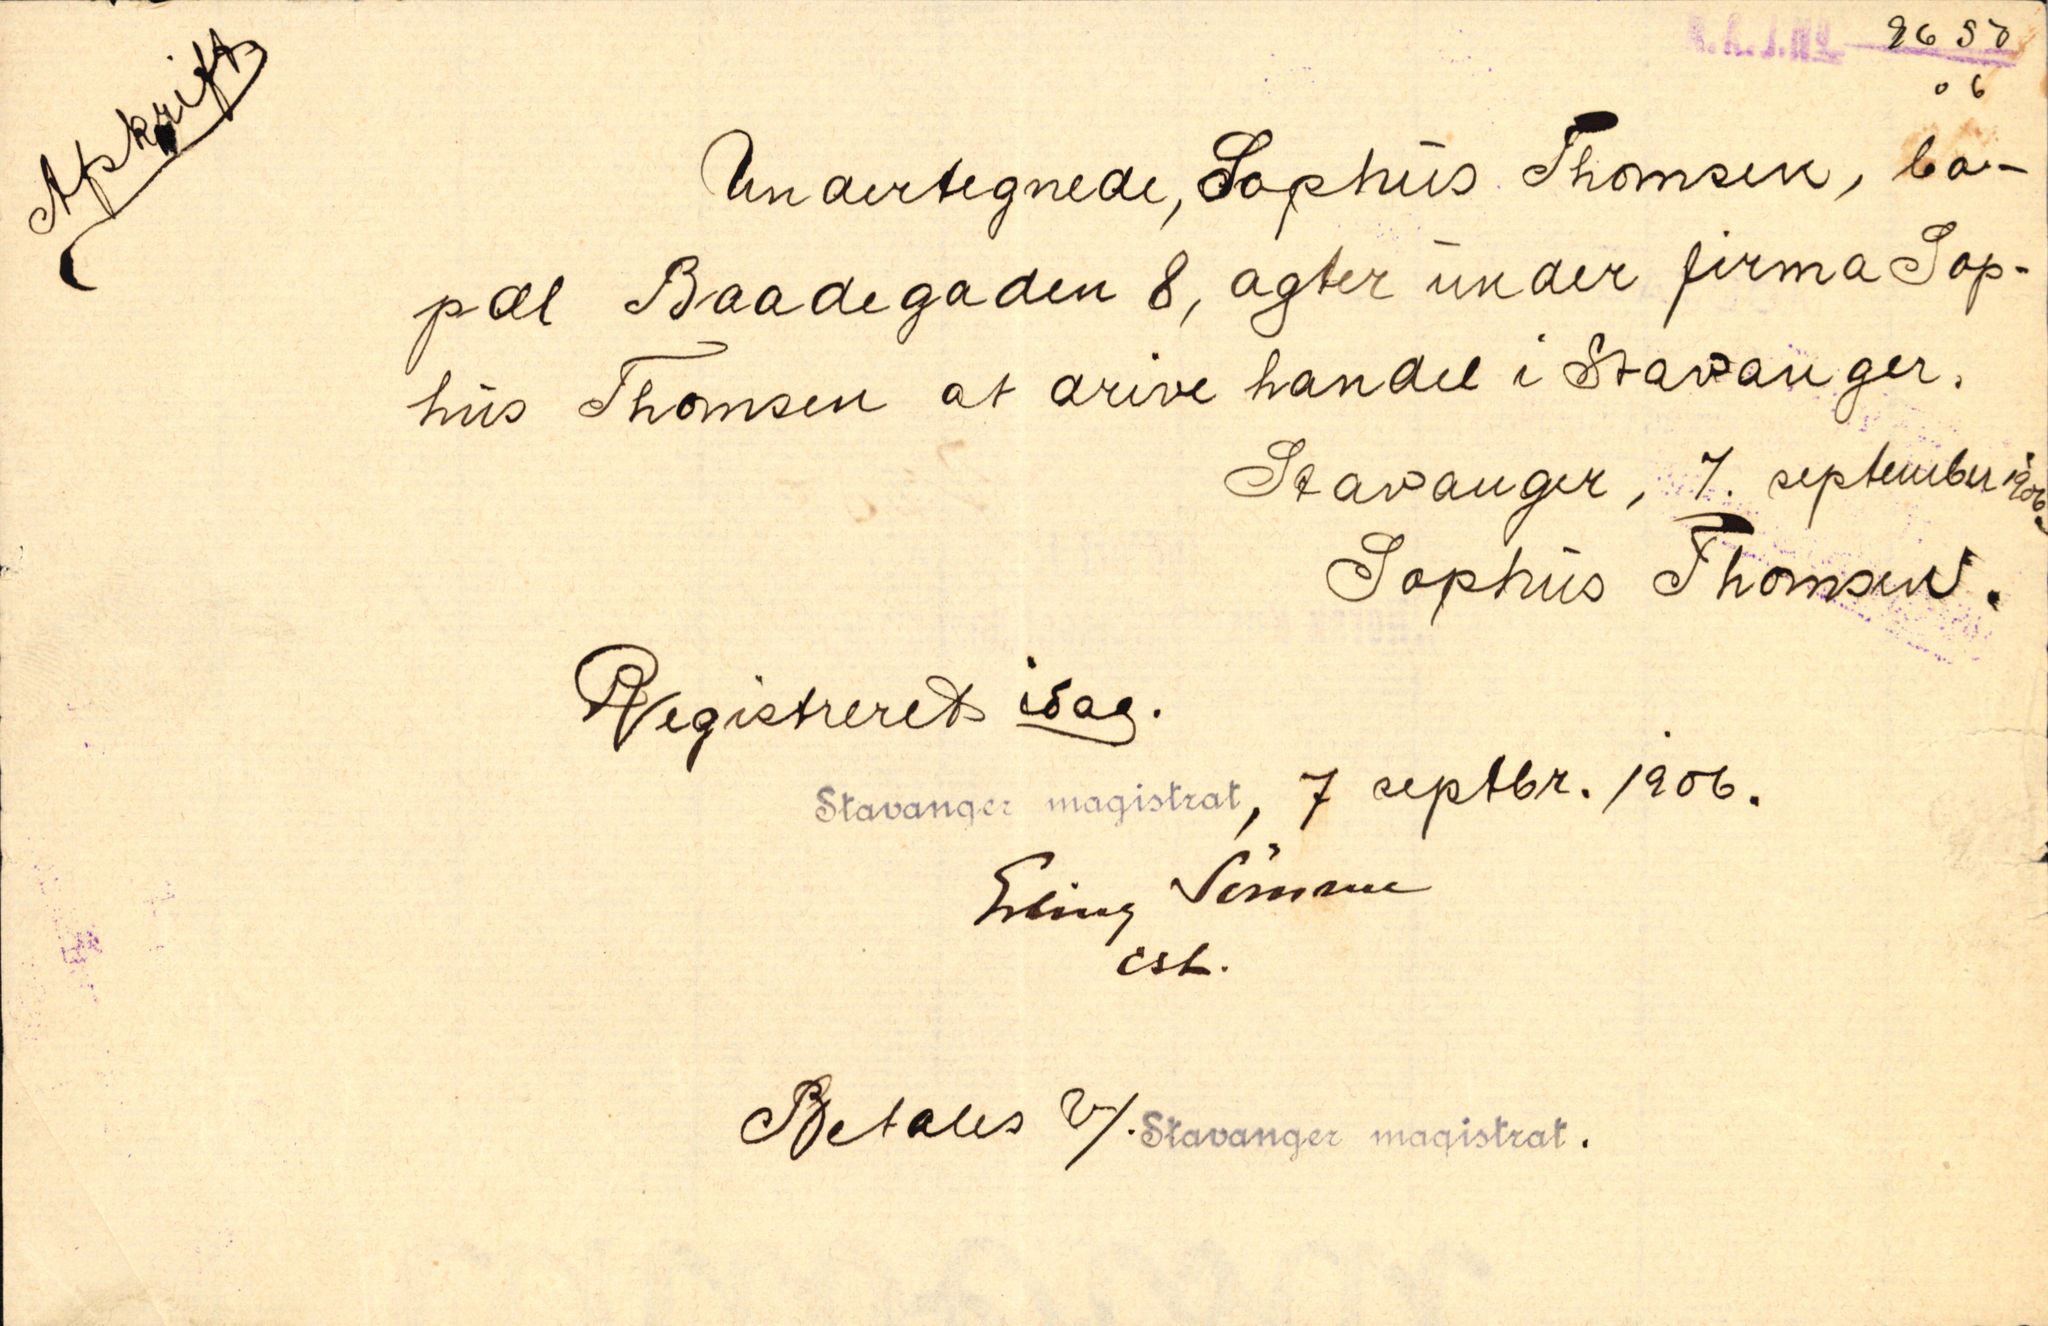 9650
06
Afskrift
Undertegnede, Sophus Thomsen, bo-
pæl Baadegaden 8, agter under firma Sop-
hus Thomsen at drive handel i Stavanger.
Stavanger, 7. september 1906.
Sophus Thomsen.
Registreret idag.
Stavanger magistrat, 7 septbr. 1906.
Erling Sömme
cst.
Betales v/. Stavanger magistrat.